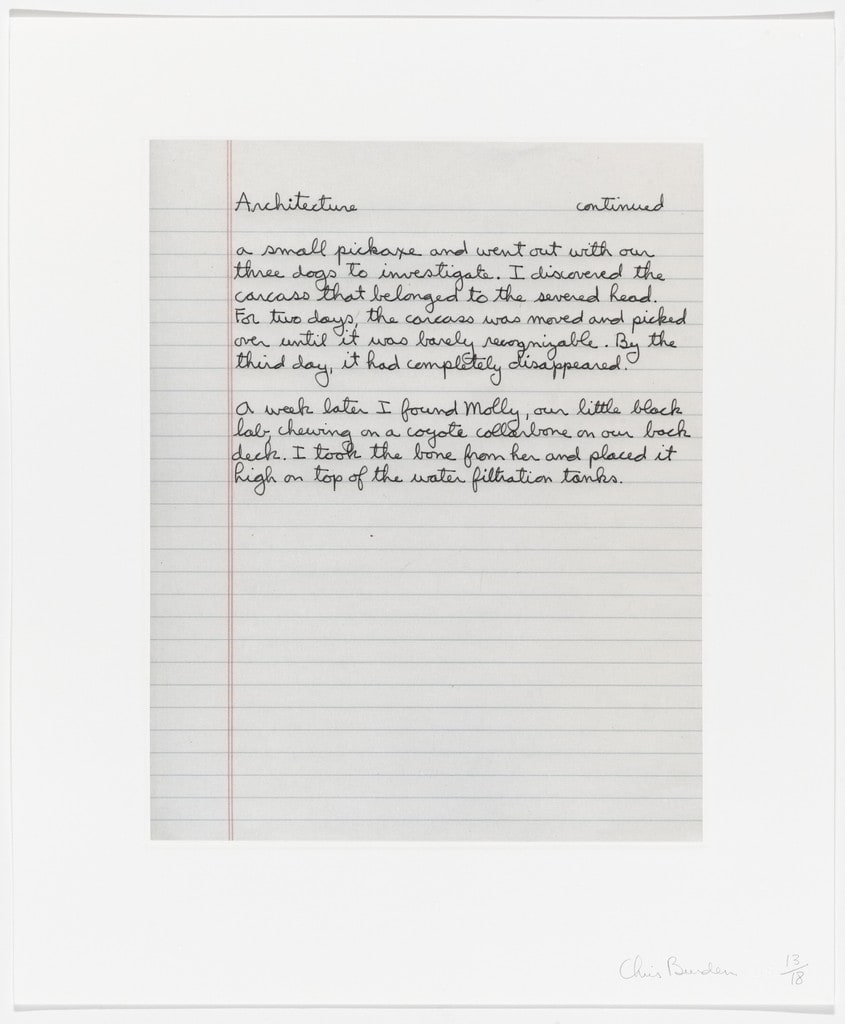 Architecture continued
a small pickaxe and went out with our
three dogs to investigate. I discovered the
carcass that belonged to the severed head.
For two days, the carcass was moved and picked
over until it was barely recognizable. By the
third day, it had completely disappeared.
A week later I found Molly, our little black
lab, chewing on a coyote collarbone on our back
deck. I took the bone from her and placed it
high on top of the water filtration tanks.
Chris Burden 13/18